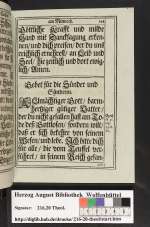 am Mitwoch.
Göttliche Krafft und milde
Hand mit Dancksagung erken-
nen/ und dich preisen/ der du uns
reichlich ernehrest/ an Leib und
Seel/ hie zeitlich und dort ewig-
lich/ Amen.
Gebet für die Sünder und
Sünderin.
Allmächtiger Gott/ barm-
hertziger gütiger Vatter/
der du nicht gefallen hast am To-
de deß Gottlosen/ sondern wilt/
daß er sich bekehre von seinem
Wesen/ und lebe. Ich bitte dich
für alle/ die vom Teuffel ver-
führet/ in seinem Reich gefan-
Herzog August Bibliothek Wolfenbüttel
Signatur: 216.20 Theol.
http://diglib.hab.de/drucke/216-20-theol/start.htm